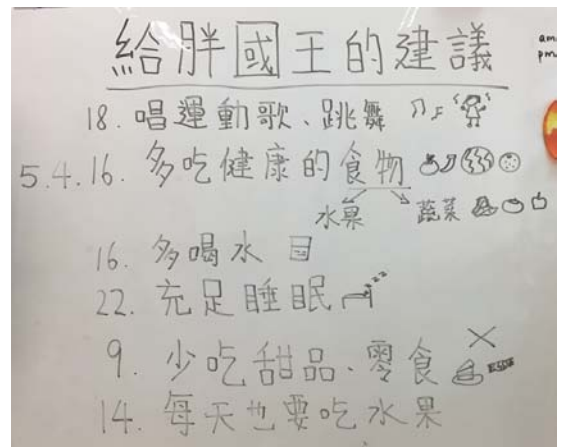 給胖國王的建議
am
pm
18. 唱運動歌、跳舞
5.4.16. 多吃健康的食物
水果 蔬菜
16. 多喝水
22. 充足睡眠 zzz
9. 少吃甜品、零食
14. 每天也要吃水果